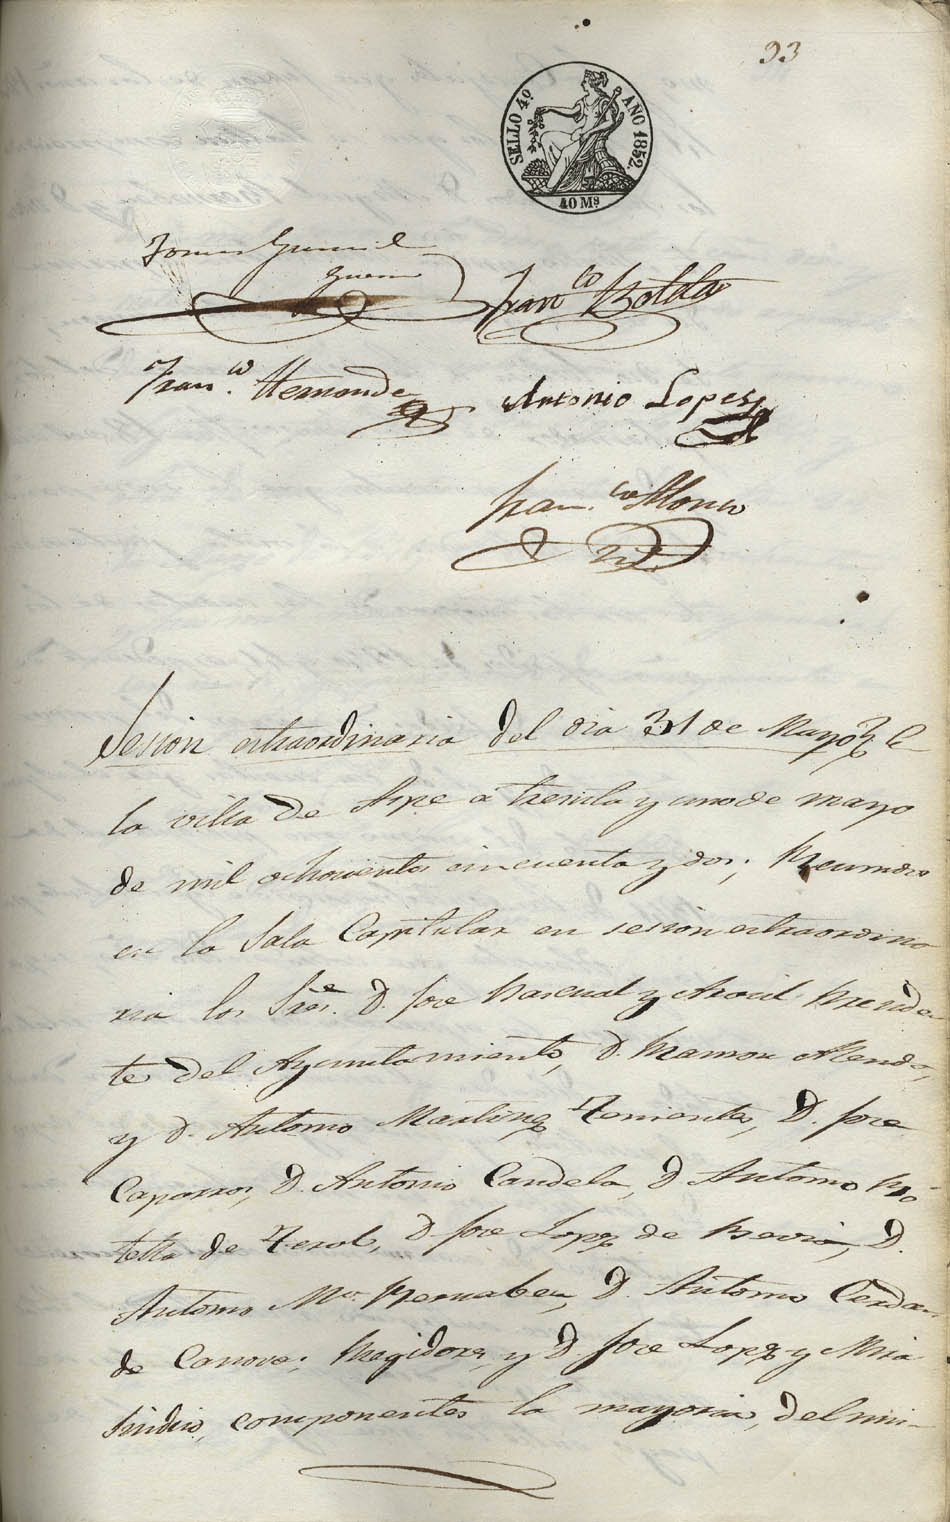 93
SELLO 4º AÑO 1852.
40 Mˢ
Franᶜᵒ Botella
Franᶜᵒ. Hernande
Antonio Lopez
Fran.ᶜᵒ Alonso
Sesion extraordinaria del dia 31 de Mayo
la villa de Aspe a treinta y uno de mayo
de mil ochocientos cincuenta y dos; Reunidos
en la Sala Capitular en sesion extraordina
ria los Sres. D. Jose Pascual y Preside
te del Ayuntamiento, D. Ramon
y D. Antonio Martinez Tenientes, D. Jose
Caparros, D. Antonio Candela, D Antonio Bo
tella de Terol, D. Jose Lopez de D.
Antonio Mª. Bernabeu, D. Antonio Cerdan
de Canovas, Regidores, y D. Jose Lopez y Mira
Sindico, componentes la mayoria, del mi-